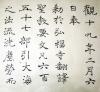 觀十九年二月六
日奉
敕於弘福寺翻譯
聖教要文凡六百
五十七部引大海
之法流洗塵勞而